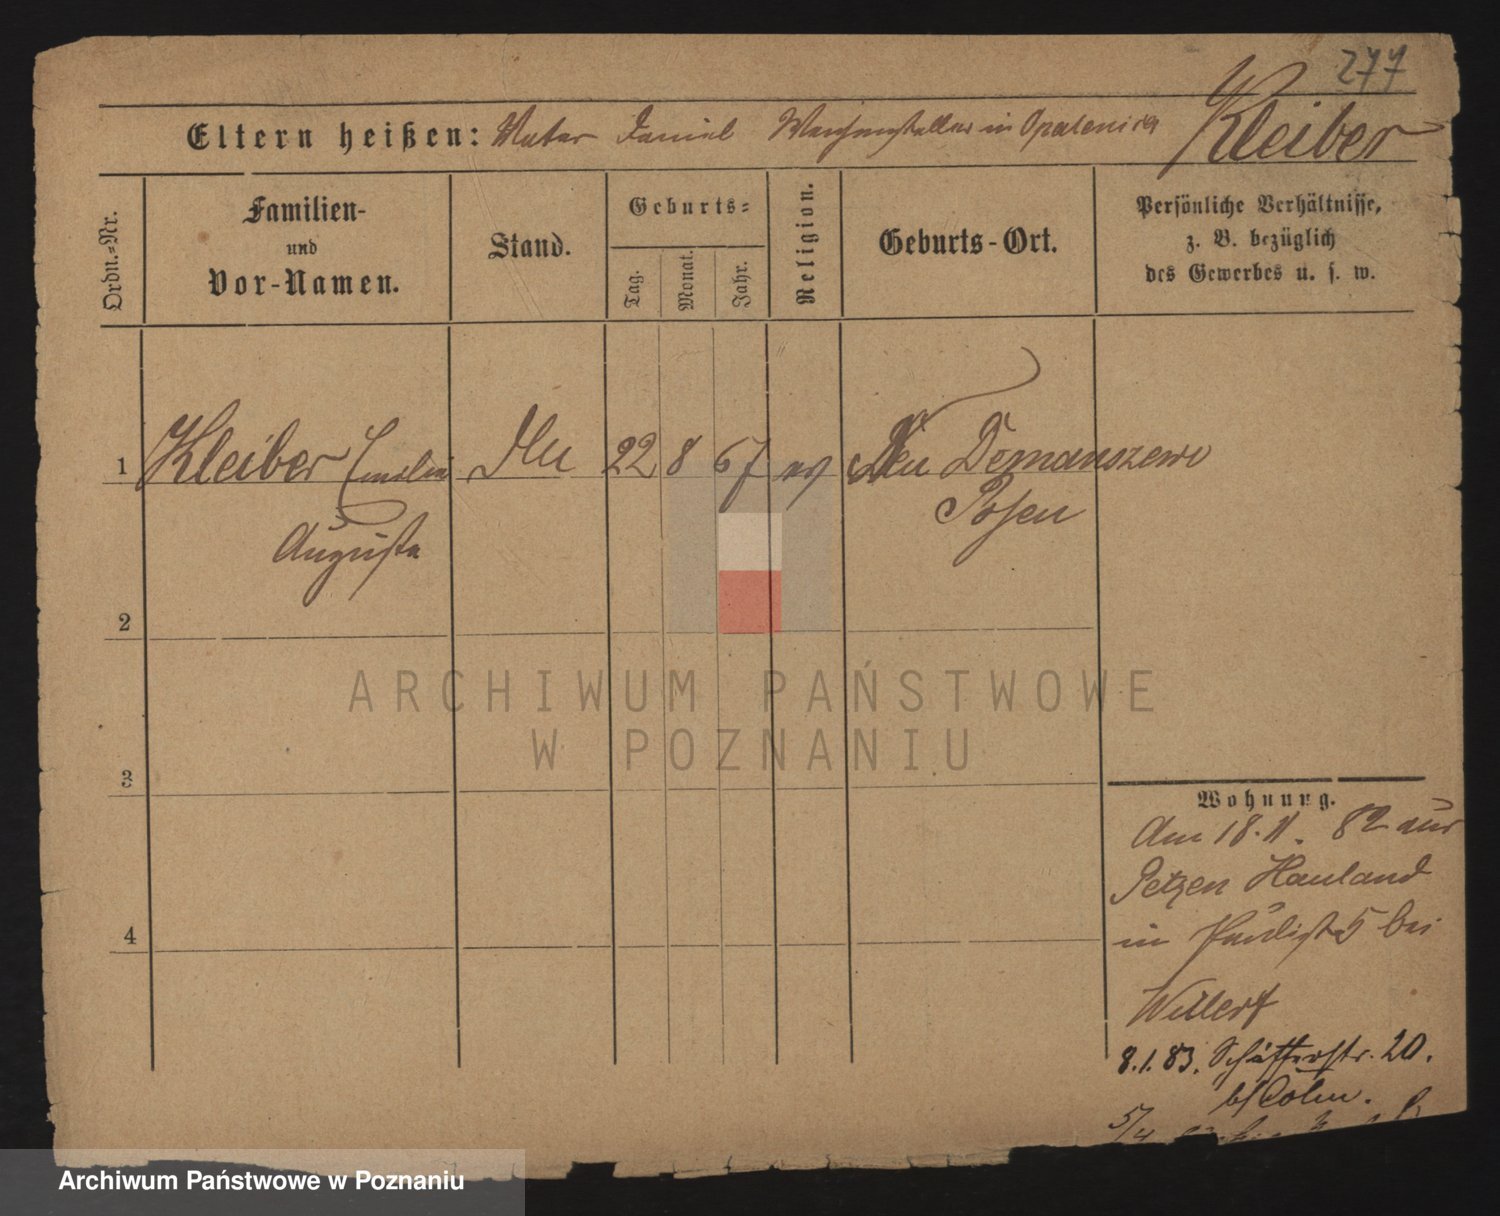 277
Kleiber
Eltern heißen: Vater Daniel Weichensteller in Opalenica
Ordn.-Nr.
Familien-
und
Vor-Namen.
Stand.
Geburts-
Tag.
Monat.
Jahr.
Religion.
Geburts-Ort.
Persönliche Verhältnisse,
z. B. bezüglich
des Gewerbes u. s. w.
1 Kleiber Emilie 22 8 67 ev Neu Tomanszewo
Auguste
Posen
2
3
4
Wohnung.
Am 18. 11. 82 aus
Petzen Hauland
in 5 bei
Willert
8.1.83. Schifferstr. 20.
b/ Cohn.
5/4
ARCHIWUM PAŃSTWOWE
W POZNANIU
Archiwum Państwowe w Poznaniu